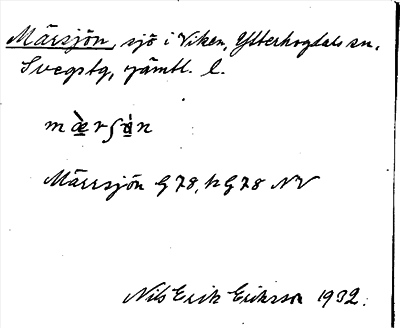 Märsjön, sjö i Viken, Ytterhogdals sn,
Svegs tg, Jämtl. l.
Märrsjön G 78, h G 78 NV
Nils Erik Eriksson 1932.